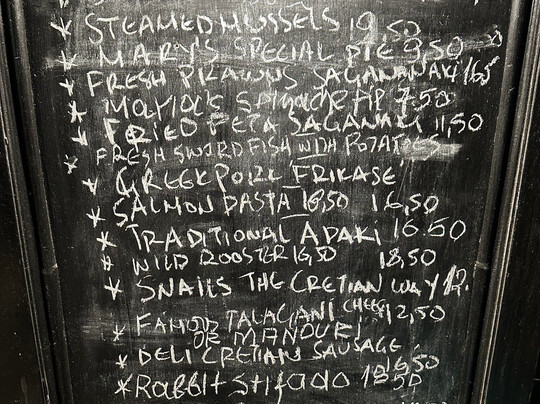 * STEAMED MUSSELS 19,50
* MARY'S SPECIAL PIE 9,50
* FRESH PRAWNS SAGANANAKI 16,5
* Maria's Spinache AP 7.50
* FRIED FETA SAGANAKI 11,50
FRESH SWORDFISH WITH POTATOES
* GREEK PORK FRIKASE
* SALMON PASTA 16,50 16,50
* TRADITIONAL APAKI 16.50
* WILD ROOSTER 16,50 18,50
* SNAILS THE CRETIAN WAY 12.
* FAMOUS TALAGANI CHEESE 12,50
OR MANOURI
* DELI CRETIAN SAUSAGE
16,50
* Rabbit Stifado 18,50